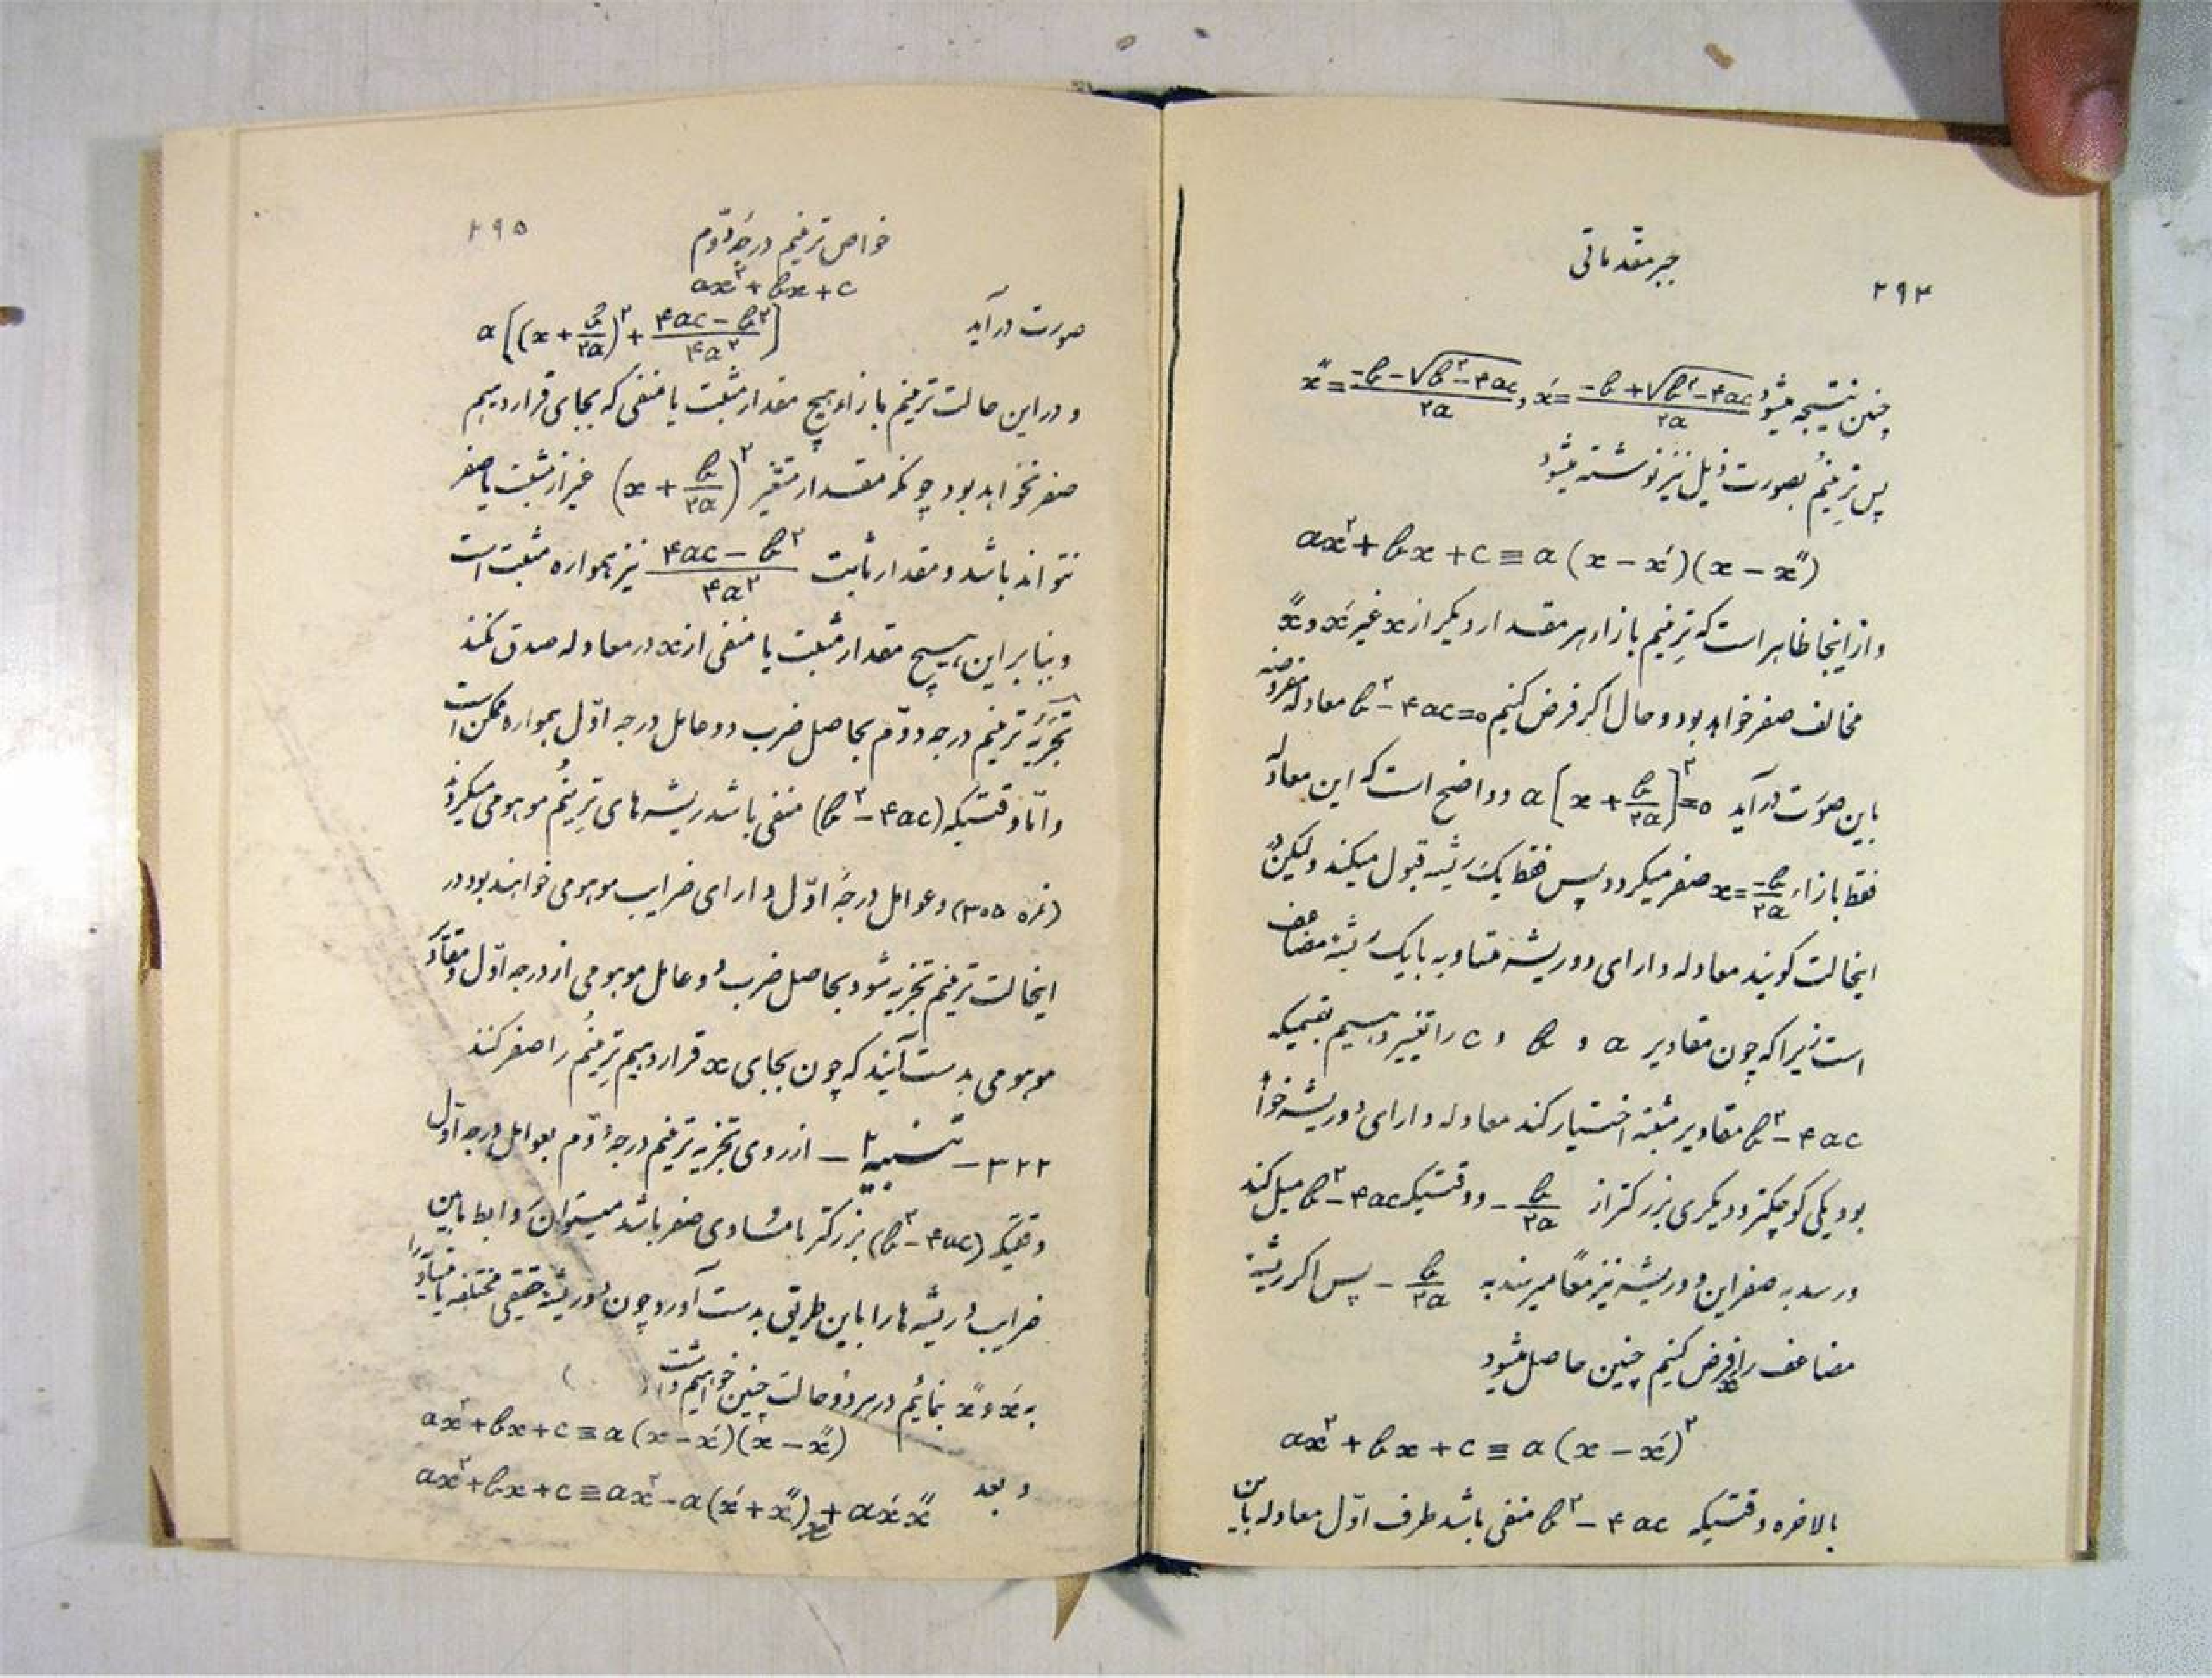 ۲۹۴
جبر مقدماتی
و چنین نتیجه میشود x′ = (-b + √(b² - ۴ac)) / ۲a و x″ = (-b - √(b² - ۴ac)) / ۲a
پس ترینم بصورت ذیل نیز نوشته میشود
ax² + bx + c ≡ a(x - x′)(x - x″)
و از اینجا ظاهر است که ترینم بازاء هر مقدار دیگر از x غیر x′ و x″
مخالف صفر خواهد بود و حال اگر فرض کنیم b² - ۴ac = ۰ معادله مفروضه
باین صورت درآید a[x + b/۲a]² = ۰ و واضح است که این معادله
فقط بازاء x = -b/۲a صفر میگردد پس فقط یک ریشه قبول میکند ولیکن در
اینحالت گویند معادله دارای دو ریشه متساویه یا یک ریشه مضاعف
است زیرا که چون مقادیر a و b و c را تغییر دهیم بقسمیکه
b² - ۴ac مقادیر مثبته اختیار کند معادله دارای دو ریشه خواهد
بود یکی کوچکتر و دیگری بزرگتر از -b/۲a و وقتیکه b² - ۴ac میل کند
و رسد به صفر این دو ریشه نیز معاً میرسند به -b/۲a پس اگر ریشه
مضاعف را x′ فرض کنیم چنین حاصل میشود
ax² + bx + c ≡ a(x - x′)²
بالاخره وقتیکه b² - ۴ac منفی باشد طرف اول معادله باین
خواص ترینم درجه دوم
۲۹۵
ax² + bx + c
صورت درآید a[(x + b/۲a)² + (۴ac - b²)/۴a²]
و در این حالت ترینم بازاء هیچ مقدار مثبت یا منفی که بجای قرار دهیم
صفر نخواهد بود چونکه مقدار متغیر (x + b/۲a)² غیر از مثبت یا صفر
نتواند باشد و مقدار ثابت (۴ac - b²)/۴a² نیز همواره مثبت است
و بنابراین هیچ مقدار مثبت یا منفی از x در معادله صدق نکند
تجزیه ترینم درجه دوم بحاصل ضرب دو عامل درجه اول همواره ممکن است
و اما وقتیکه (b² - ۴ac) منفی باشد ریشه های ترینم موهومی میگردد
(نمره ۳۰۵) و عوامل درجه اول دارای ضرایب موهومی خواهند بود در
اینحالت ترینم تجزیه شود بحاصل ضرب دو عامل موهومی از درجه اول و مقادیر
موهومی بدست آیند که چون بجای x قرار دهیم ترینم را صفر کنند
۳۲۲ - تنبیه ۲ - از روی تجزیه ترینم درجه دوم بعوامل درجه اول
وقتیکه (b² - ۴ac) بزرگتر یا مساوی صفر باشد میتوان روابط مابین
ضرایب و ریشه ها را باین طریق بدست آورد چون دو ریشه حقیقی مختلفه یا متساویه را
به x′ و x″ بنمائیم در هر دو حالت چنین خواهیم داشت
ax² + bx + c ≡ a(x - x′)(x - x″)
و بعد ax² + bx + c ≡ ax² - a(x′ + x″)x + ax′x″